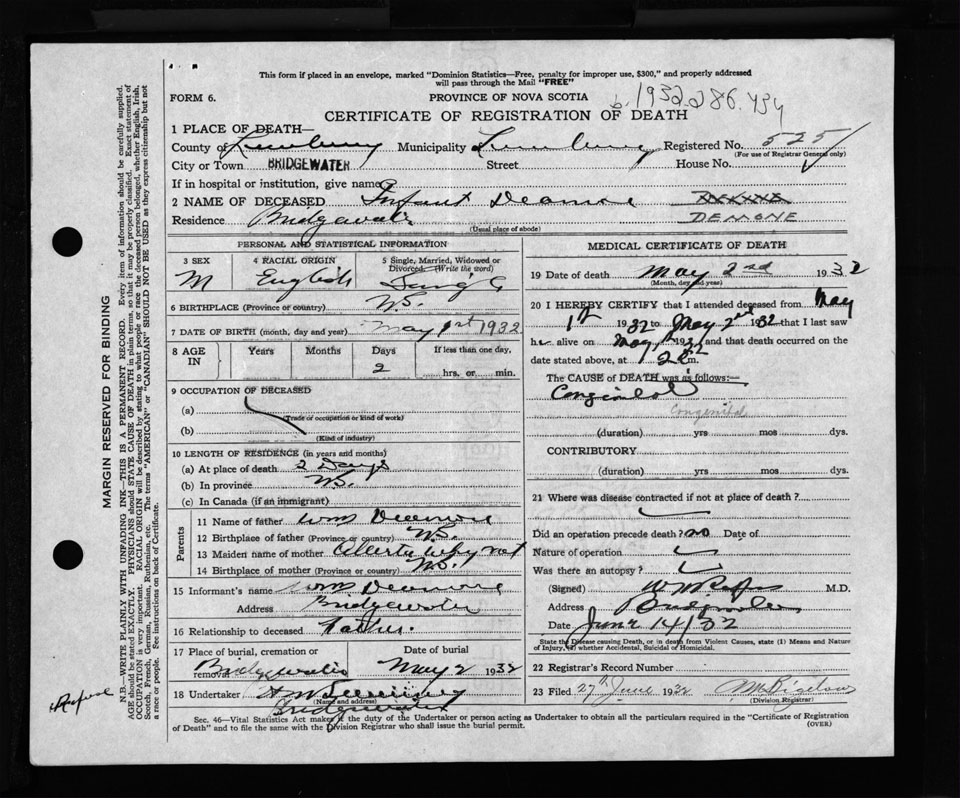 This form if placed in an envelope, marked "Dominion Statistics—Free, penalty for improper use, $300," and properly addressed
will pass through the Mail "FREE"
FORM 6.
PROVINCE OF NOVA SCOTIA
b. 1932.286.434
CERTIFICATE OF REGISTRATION OF DEATH
1 PLACE OF DEATH—
County of Lunenburg Municipality Lunenburg Registered No. 525
(For use of Registrar General only)
City or Town BRIDGEWATER Street House No.
If in hospital or institution, give name
2 NAME OF DECEASED Infant Deamone
DEMONE
Residence Bridgewater
(Usual place of abode)
PERSONAL AND STATISTICAL INFORMATION
3 SEX
M
4 RACIAL ORIGIN
English
5 Single, Married, Widowed or
Divorced. (Write the word)
Single
6 BIRTHPLACE (Province or country) N.S.
7 DATE OF BIRTH (month, day and year) May 1st 1932
8 AGE
IN
Years
Months
Days
2
If less than one day,
hrs. or min.
9 OCCUPATION OF DECEASED
(a)
(Trade or occupation or kind of work)
(b)
(Kind of industry)
10 LENGTH OF RESIDENCE (in years and months)
(a) At place of death 2 Days
(b) In province N.S.
(c) In Canada (if an immigrant)
Parents
11 Name of father Wm Deamone
12 Birthplace of father (Province or country) N.S.
13 Maiden name of mother Alberta Whynot
14 Birthplace of mother (Province or country) N.S.
15 Informant's name Wm Deamone
Address Bridgewater
16 Relationship to deceased Father.
17 Place of burial, cremation or
removal Bridgewater
Date of burial
May 2 1932
18 Undertaker
(Name and address)
Bridgewater
MEDICAL CERTIFICATE OF DEATH
19 Date of death May 2nd 1932
(Month, day and year)
20 I HEREBY CERTIFY that I attended deceased from May
1st 1932 to May 2nd 1932 that I last saw
h alive on May 1932 and that death occurred on
date stated above, at m.
The CAUSE of DEATH was as follows:—
Congenital
Congenital
(duration) yrs mos dys.
CONTRIBUTORY
(duration) yrs. mos. dys.
21 Where was disease contracted if not at place of death?
Did an operation precede death? no Date of
Nature of operation
Was there an autopsy?
(Signed) M.D.
Address Bridgewater
Date June 14/32
State the Disease causing Death, or in death from Violent Causes, state (1) Means and Nature
of Injury, (2) whether Accidental, Suicidal or Homicidal.
22 Registrar's Record Number
23 Filed 27th June 1932
(Division Registrar)
Sec. 46—Vital Statistics Act makes it the duty of the Undertaker or person acting as Undertaker to obtain all the particulars required in the "Certificate of Registration
of Death" and to file the same with the Division Registrar who shall issue the burial permit.
(OVER)
MARGIN RESERVED FOR BINDING
N.B.—WRITE PLAINLY WITH UNFADING INK—THIS IS A PERMANENT RECORD. Every item of information should be carefully supplied.
AGE should be stated EXACTLY. PHYSICIANS should STATE CAUSE OF DEATH in plain terms, so that it may be properly classified. Exact statement of
OCCUPATION is very important. RACIAL ORIGIN will be described by stating to what people or race the deceased person belonged, whether English, Irish,
Scotch, French, German, Russian, Ruthenian, etc. The terms "AMERICAN" or "CANADIAN" SHOULD NOT BE USED as they express citizenship but not
a race or people. See instructions on back of Certificate.